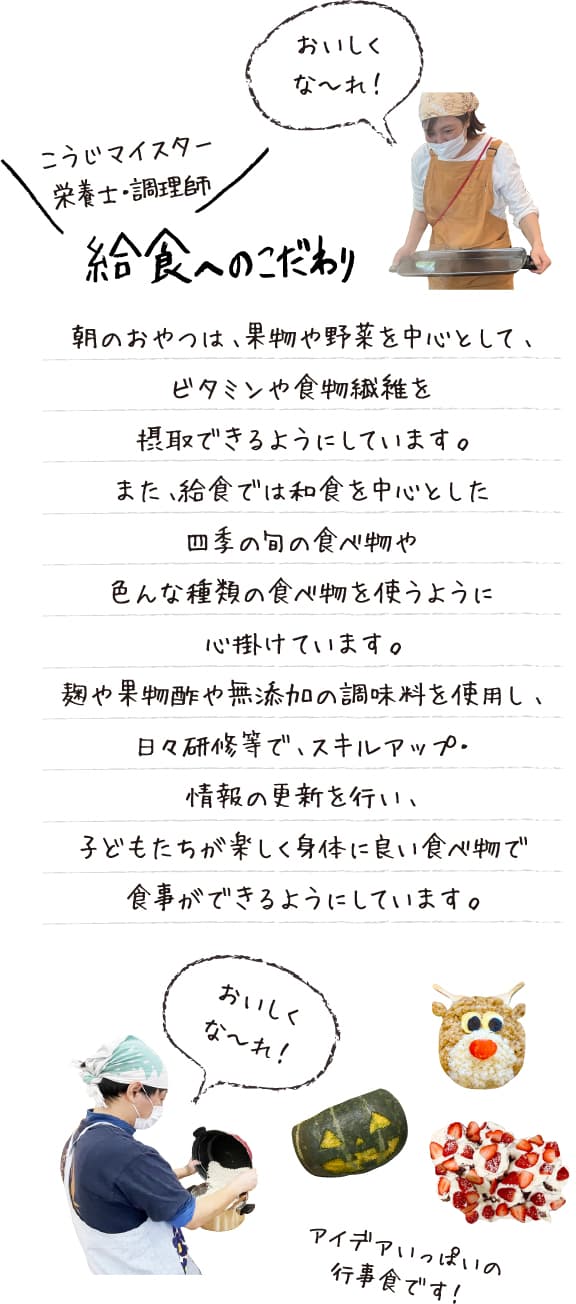 おいしく
な〜れ！
こうじマイスター
栄養士・調理師
給食へのこだわり
朝のおやつは、果物や野菜を中心として、
ビタミンや食物繊維を
摂取できるようにしています。
また、給食では和食を中心とした
四季の旬の食べ物や
色んな種類の食べ物を使うように
心掛けています。
麹や果物酢や無添加の調味料を使用し、
日々研修等で、スキルアップ・
情報の更新を行い、
子どもたちが楽しく身体に良い食べ物で
食事ができるようにしています。
おいしく
な〜れ！
アイデアいっぱいの
行事食です！